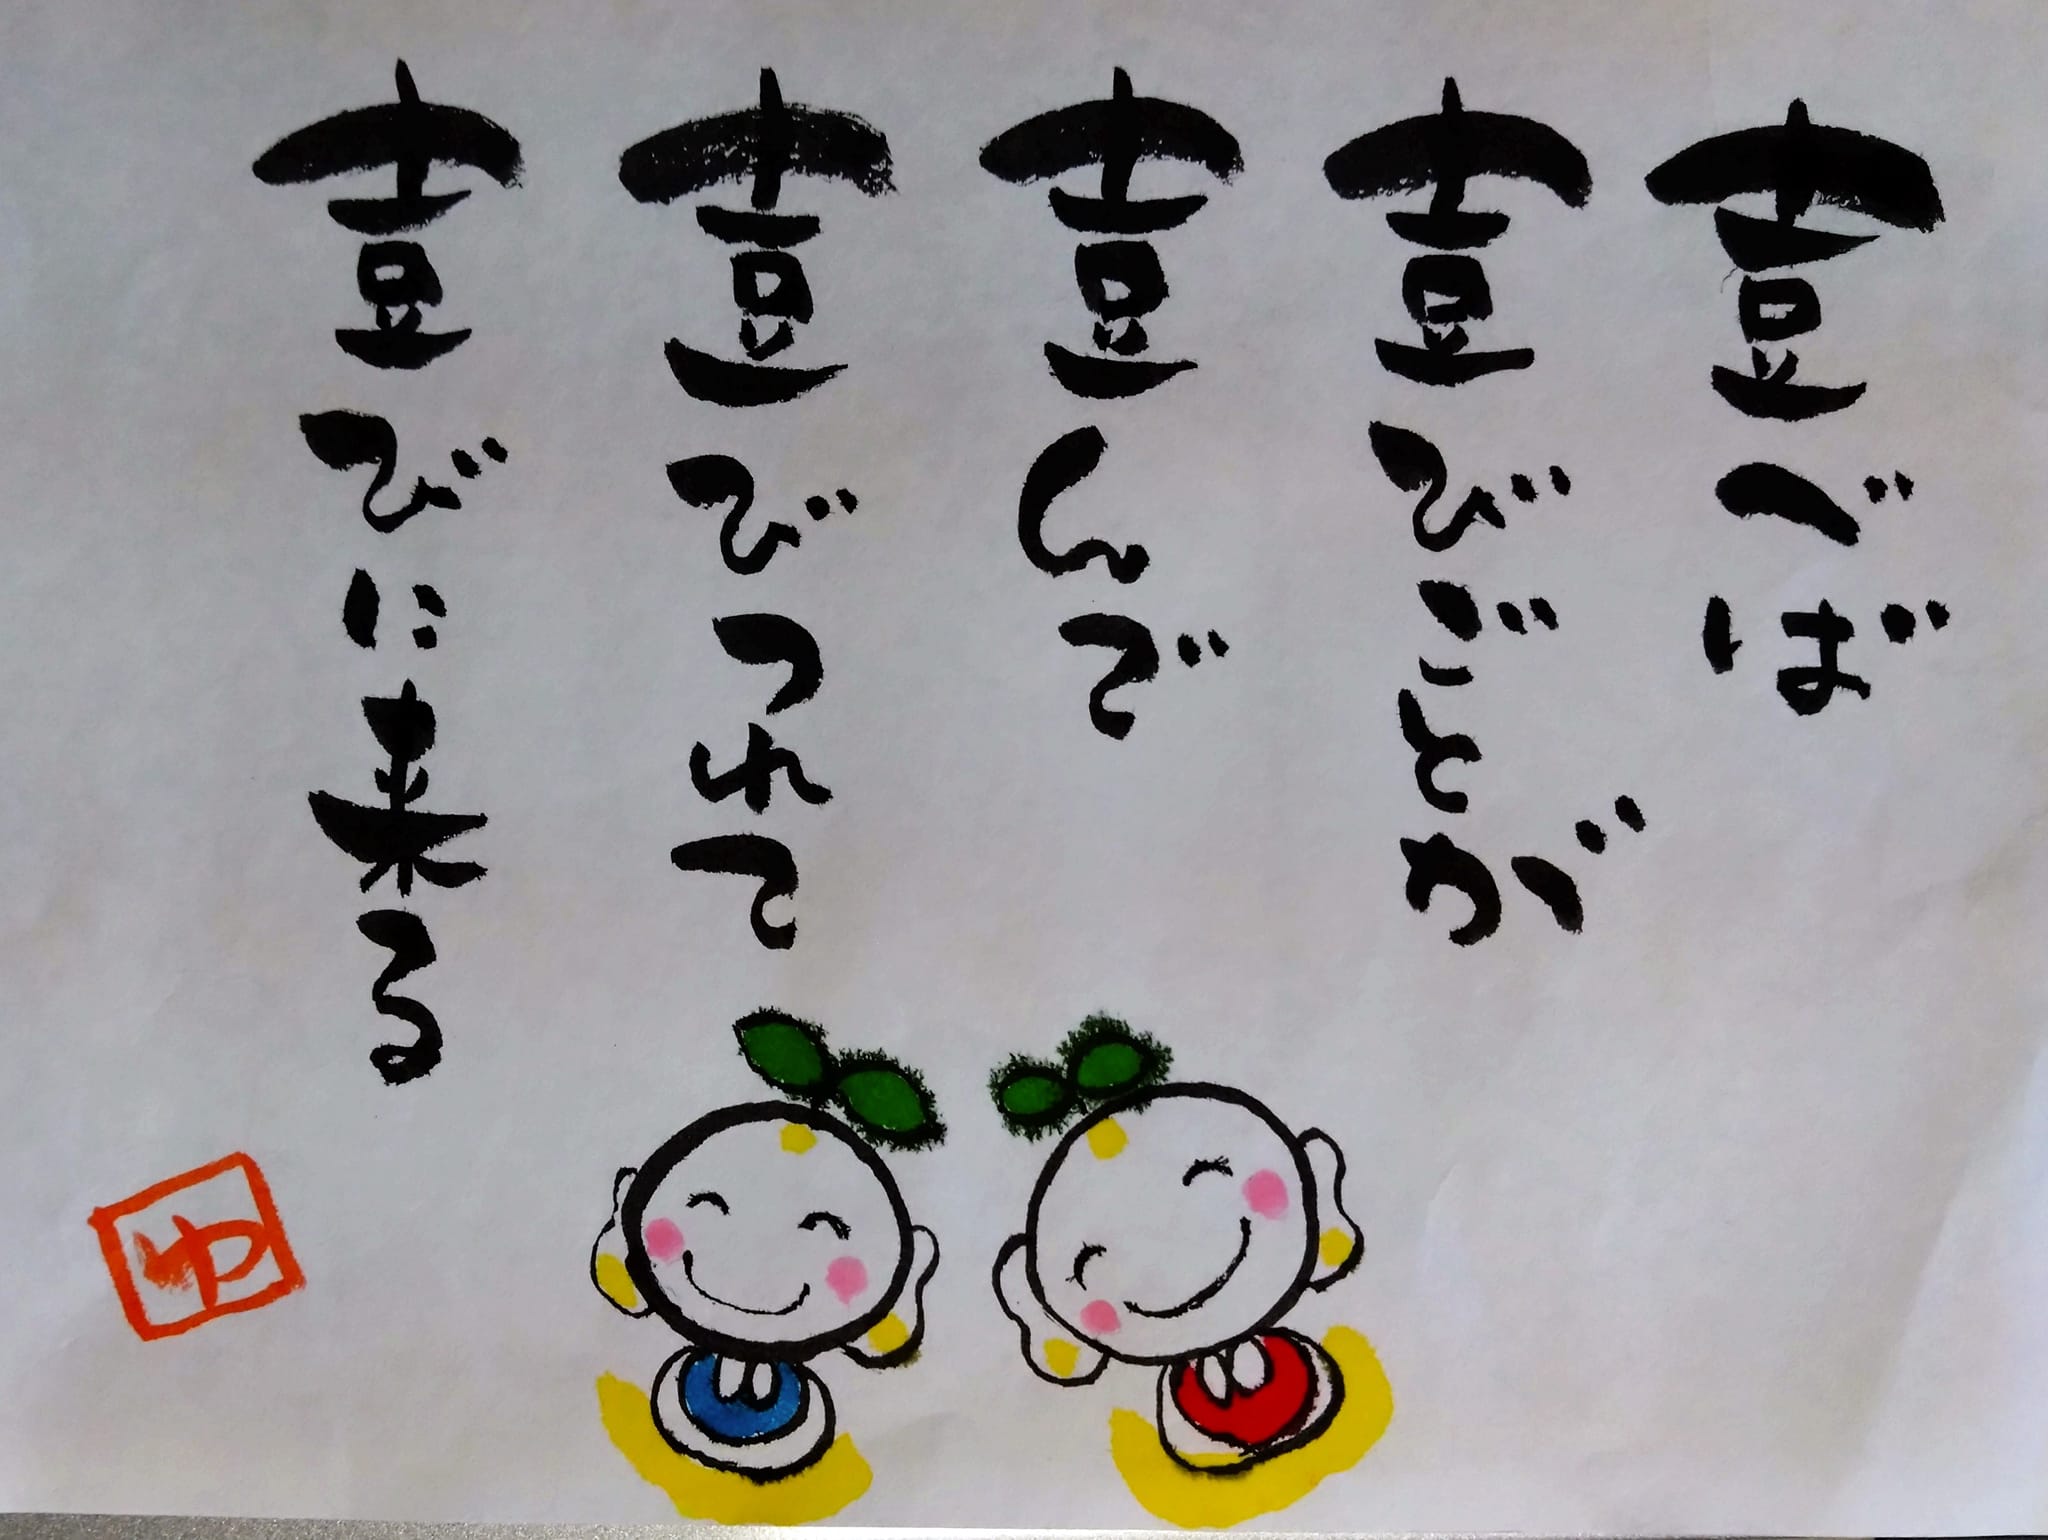 喜べば
喜びごとが
喜んで
喜びつれて
喜びに来る
ゆ